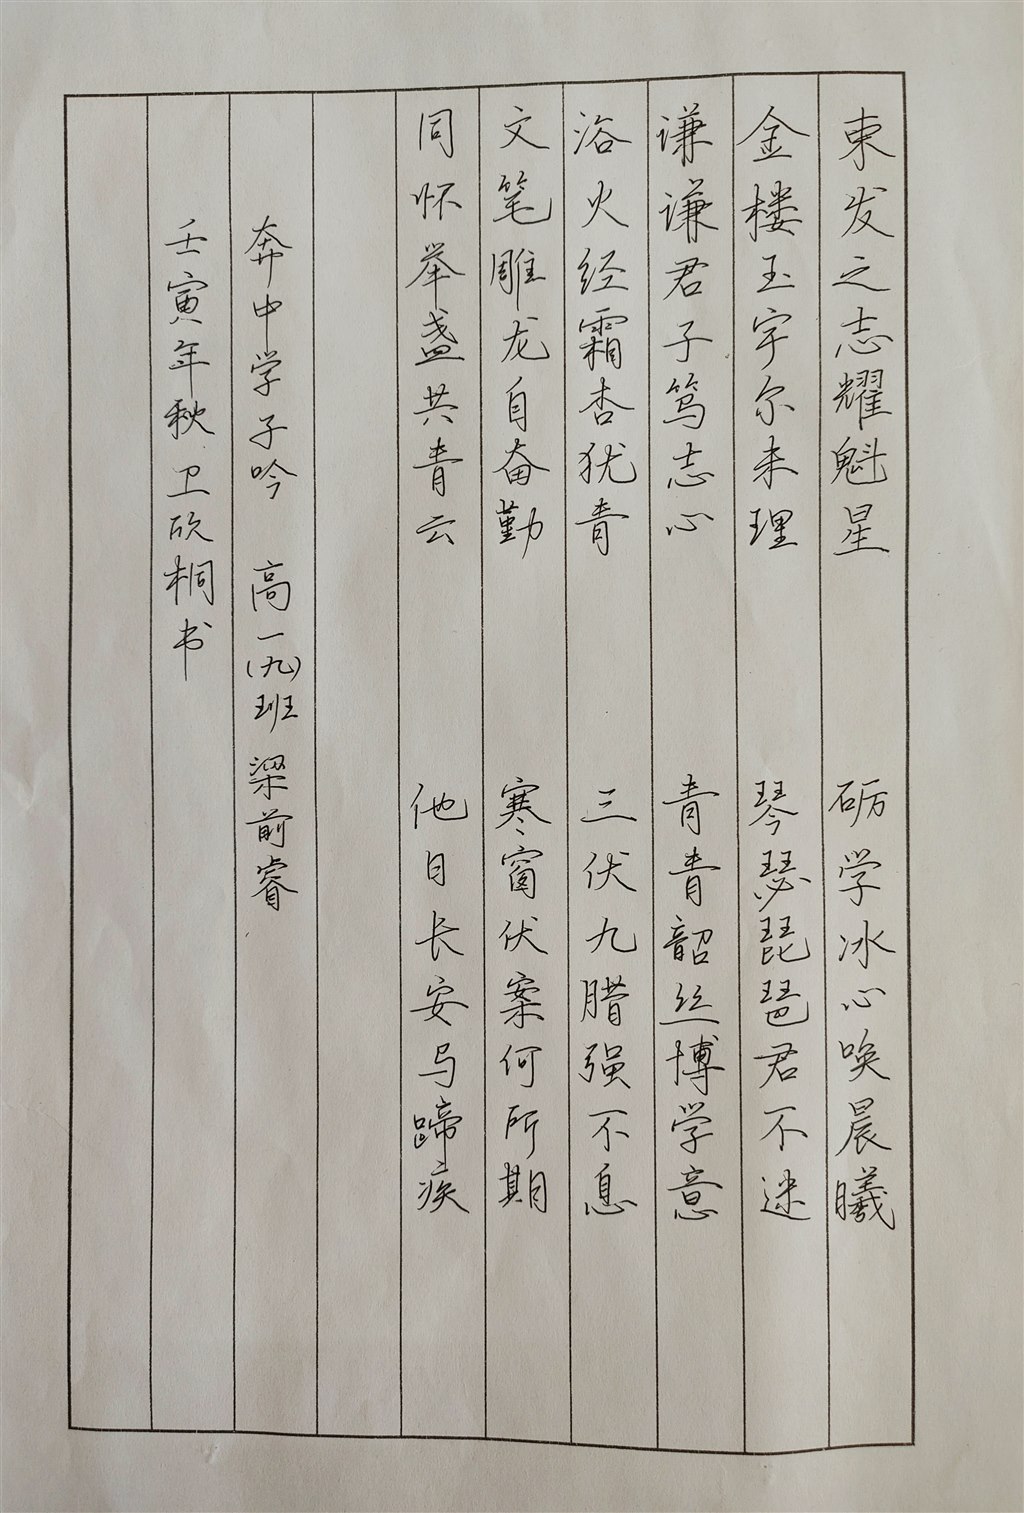 束发之志耀魁星 砺学冰心唤晨曦
金楼玉宇尔未理 琴瑟琵琶君不迷
谦谦君子笃志心 青青韶丝博学意
浴火经霜杏犹青 三伏九腊强不息
文笔雕龙自奋勤 寒窗伏案何所期
同怀举盏共青云 他日长安马蹄疾
奔中学子吟 高一(九)班 梁前睿
壬寅年秋卫欣桐书